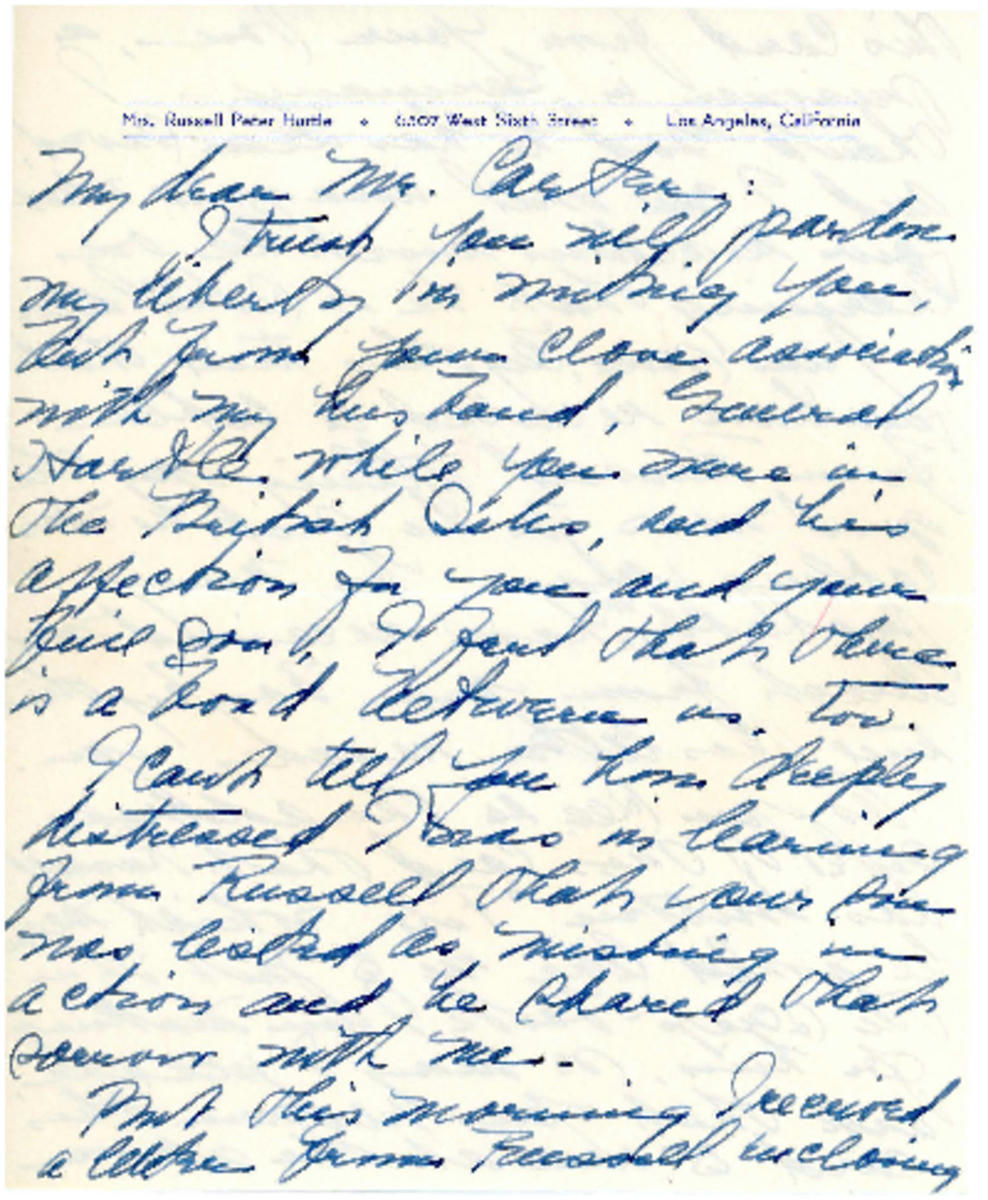 Mrs. Russell Peter Hartle • 6507 West Sixth Street • Los Angeles, California
My dear Mr. Carter:
I trust you will pardon
my liberty in writing you,
but from your close association
with my husband, General
Hartle while you were in
the British Isles, and his
affection for you and your
fine son, I feel that there
is a bond between us, too.
I can't tell you how deeply
distressed I was in learning
from Russell that your son
was listed as missing in
action and he shared that
sorrow with me.
But this morning I received
a letter from Russell inclosing